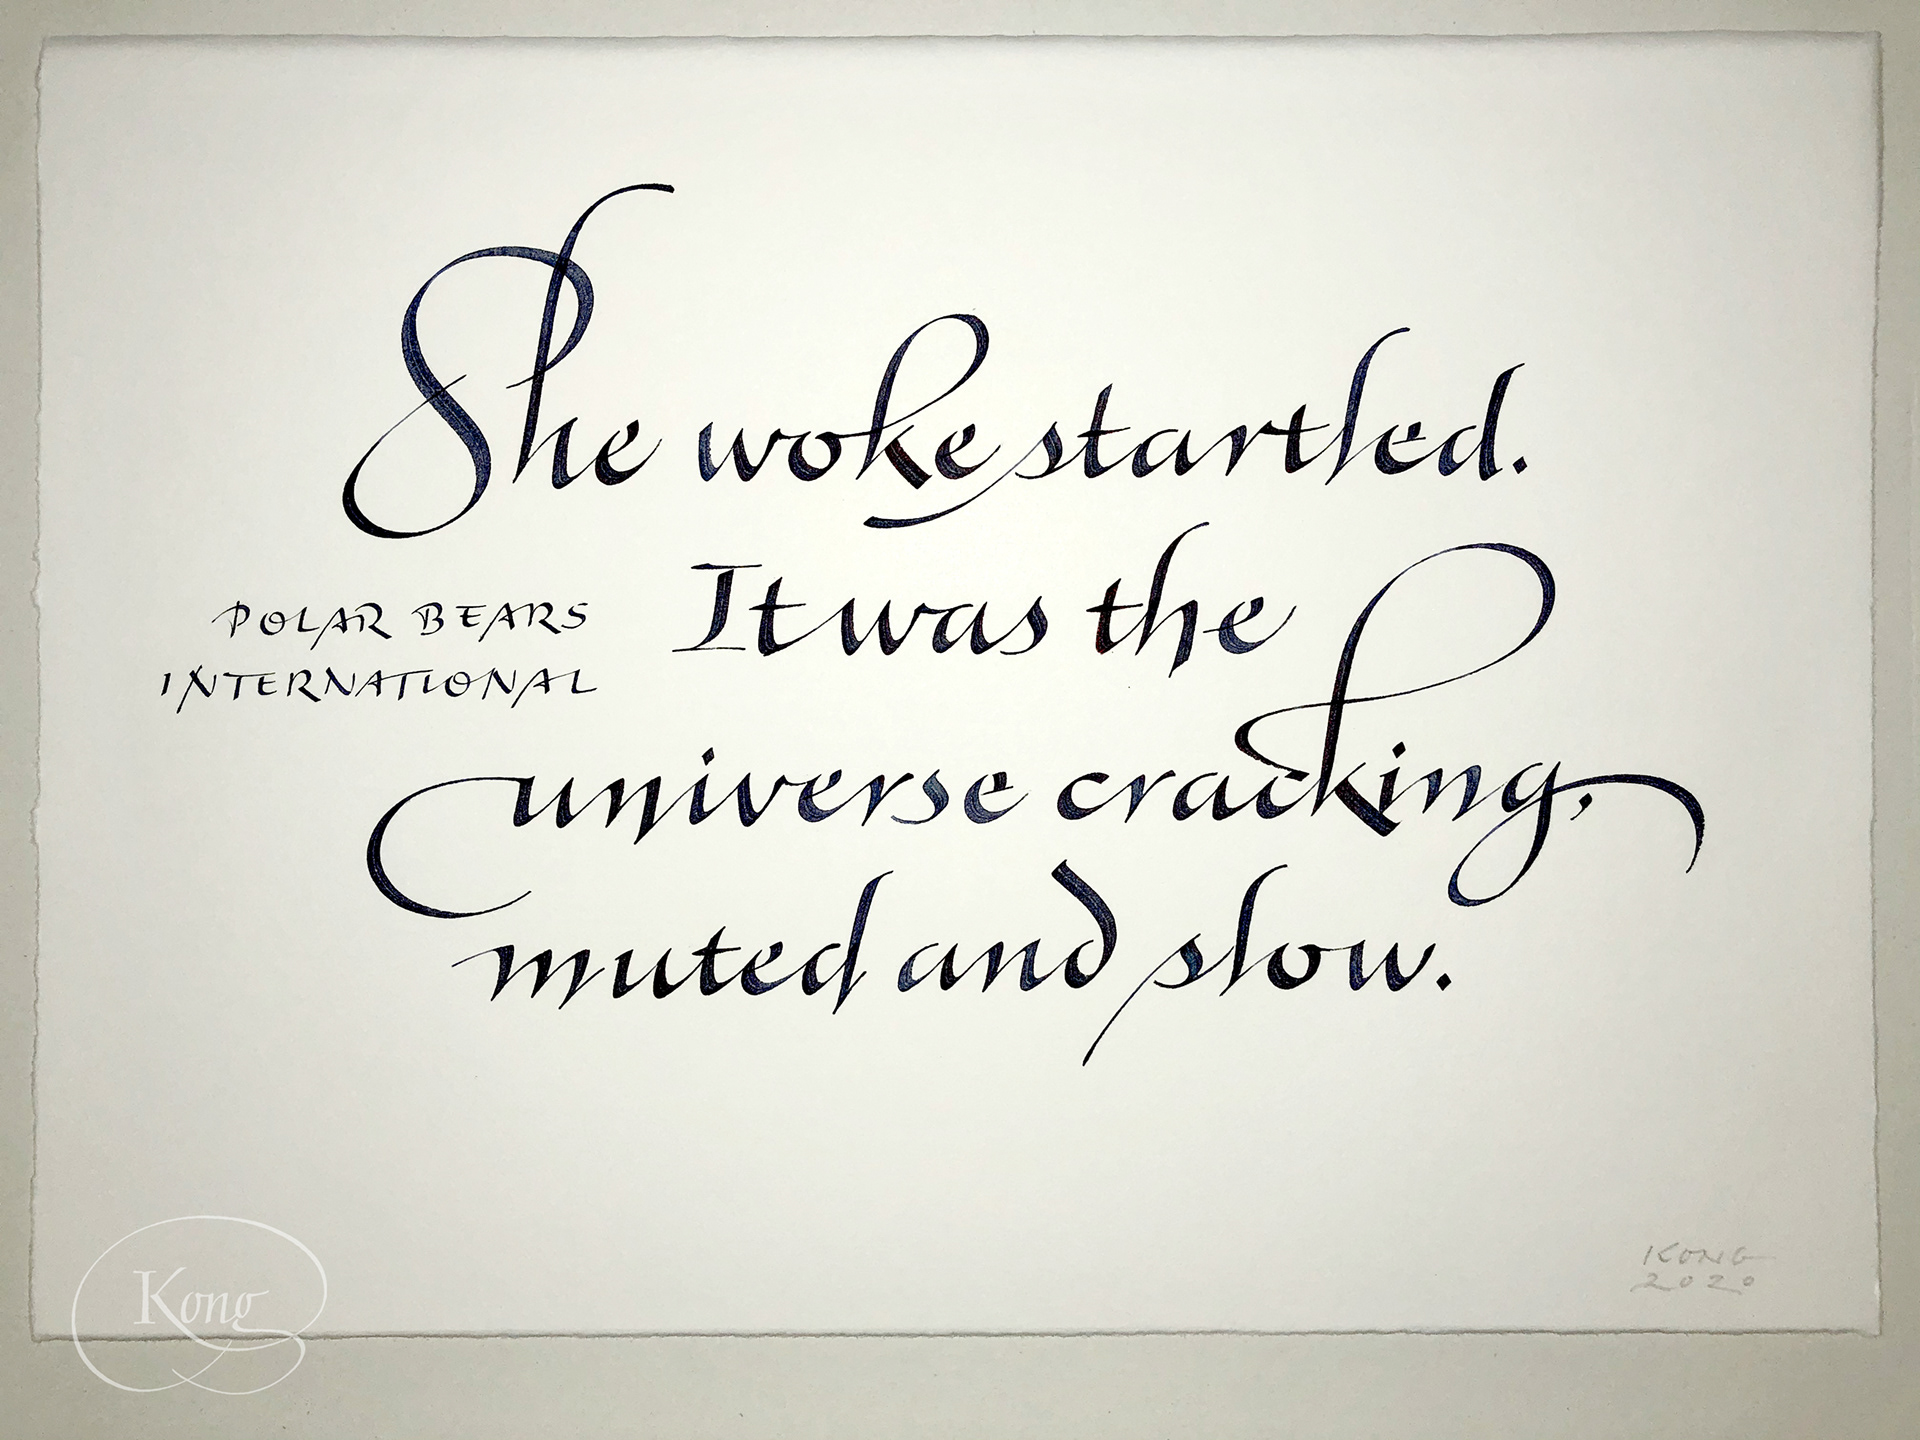 She woke startled.
It was the
POLAR BEARS
INTERNATIONAL
universe cracking,
muted and slow.
KONG
2020
Kong